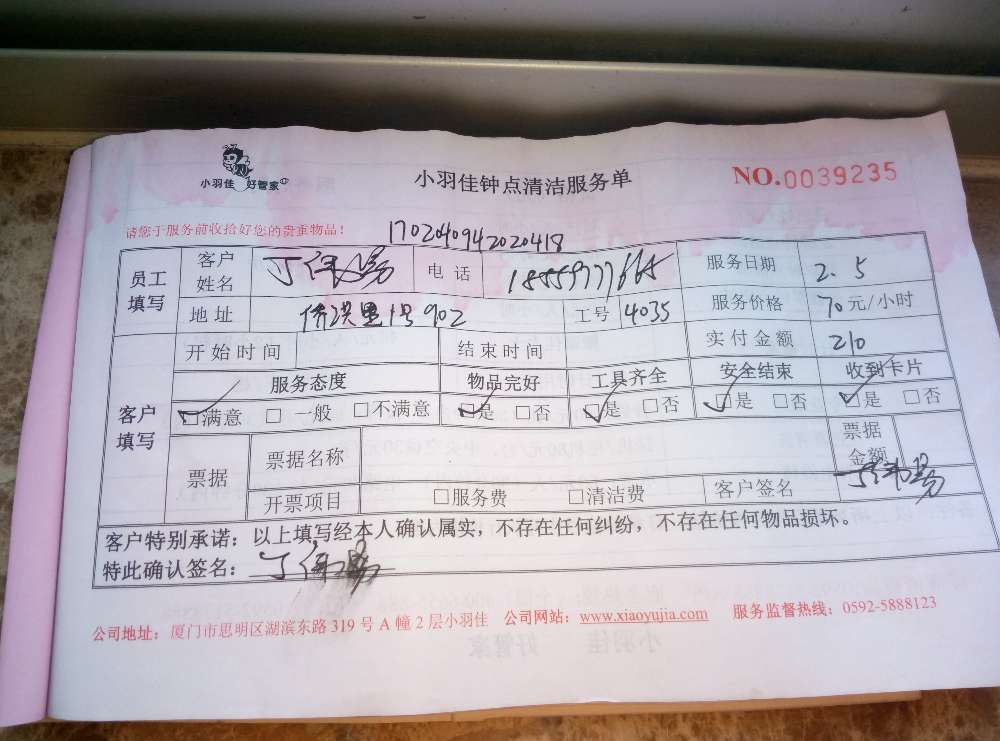 小羽佳 好管家
小羽佳钟点清洁服务单
NO.0039235
请您于服务前收拾好您的贵重物品！
1702040942020418
员工填写 客户姓名 丁 电话 服务日期 2.5
地址 侨洪里 1号 902 工号 4035 服务价格 70元/小时
开始时间 结束时间 实付金额 210
客户填写 服务态度 物品完好 工具齐全 安全结束 收到卡片
□满意 □一般 □不满意 □是 □否 □是 □否 □是 □否 □是 □否
票据 票据名称 票据金额
开票项目 □服务费 □清洁费 客户签名
客户特别承诺：以上填写经本人确认属实，不存在任何纠纷，不存在任何物品损坏。
特此确认签名：
公司地址：厦门市思明区湖滨东路 319 号 A 幢 2 层小羽佳 公司网站：www.xiaoyujia.com 服务监督热线：0592-5888123